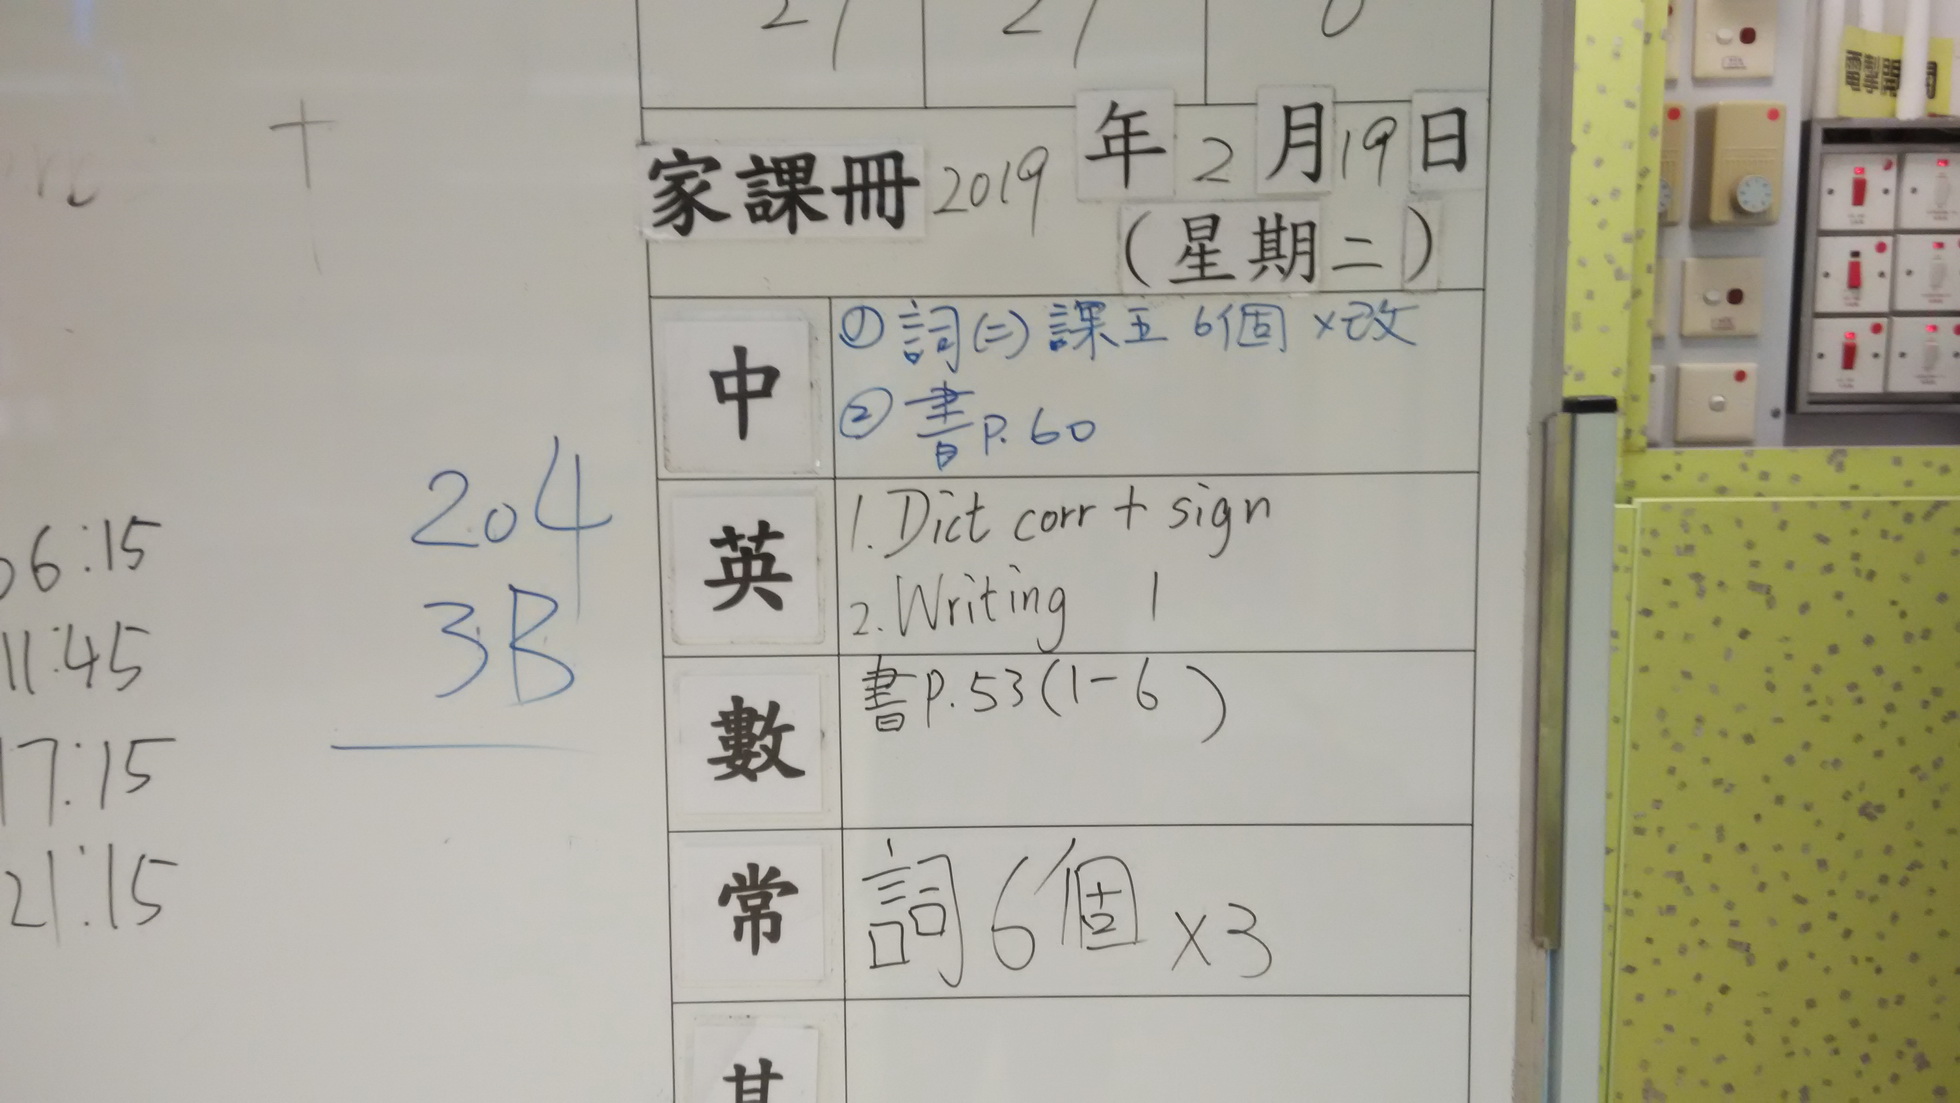 27 27 0
家課冊 2019 年 2 月 19 日
(星期二)
中
① 詞(二) 課五 6個 x改
② 書 P. 60
英
1. Dict corr + sign
2. Writing 1
數
書 P. 53 (1-6)
常
詞 6個 x3
其
204
3B
06:15
11:45
17:15
21:15